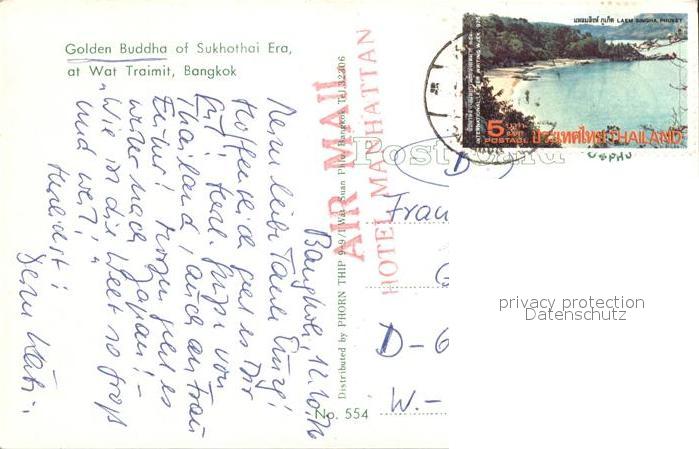 Golden Buddha of Sukhothai Era,
at Wat Traimit, Bangkok
Bangkok, 12.10.76
Meine liebe Tante
Hoffentlich geht es Dir
gut! Herzl. Grüße von
Thailand, auch an Frau
Morgen geht es
weiter nach Japan! –
"Wie ist die Welt so groß
und weit!"
Herzlichst!
Deine
Distributed by PHORN THIP 9-9/1 Wat Suan Phlu, Bangkok Tel. 32306
No. 554
AIR MAIL
HOTEL MANHATTAN
Post Card
แหลมสิงห์ ภูเก็ต LAEM SINGHA PHUKET
INTERNATIONAL LETTER WRITING WEEK 1976
5 BAHT
POSTAGE
ประเทศไทย THAILAND
Frau
D-6
W.-
privacy protection
Datenschutz